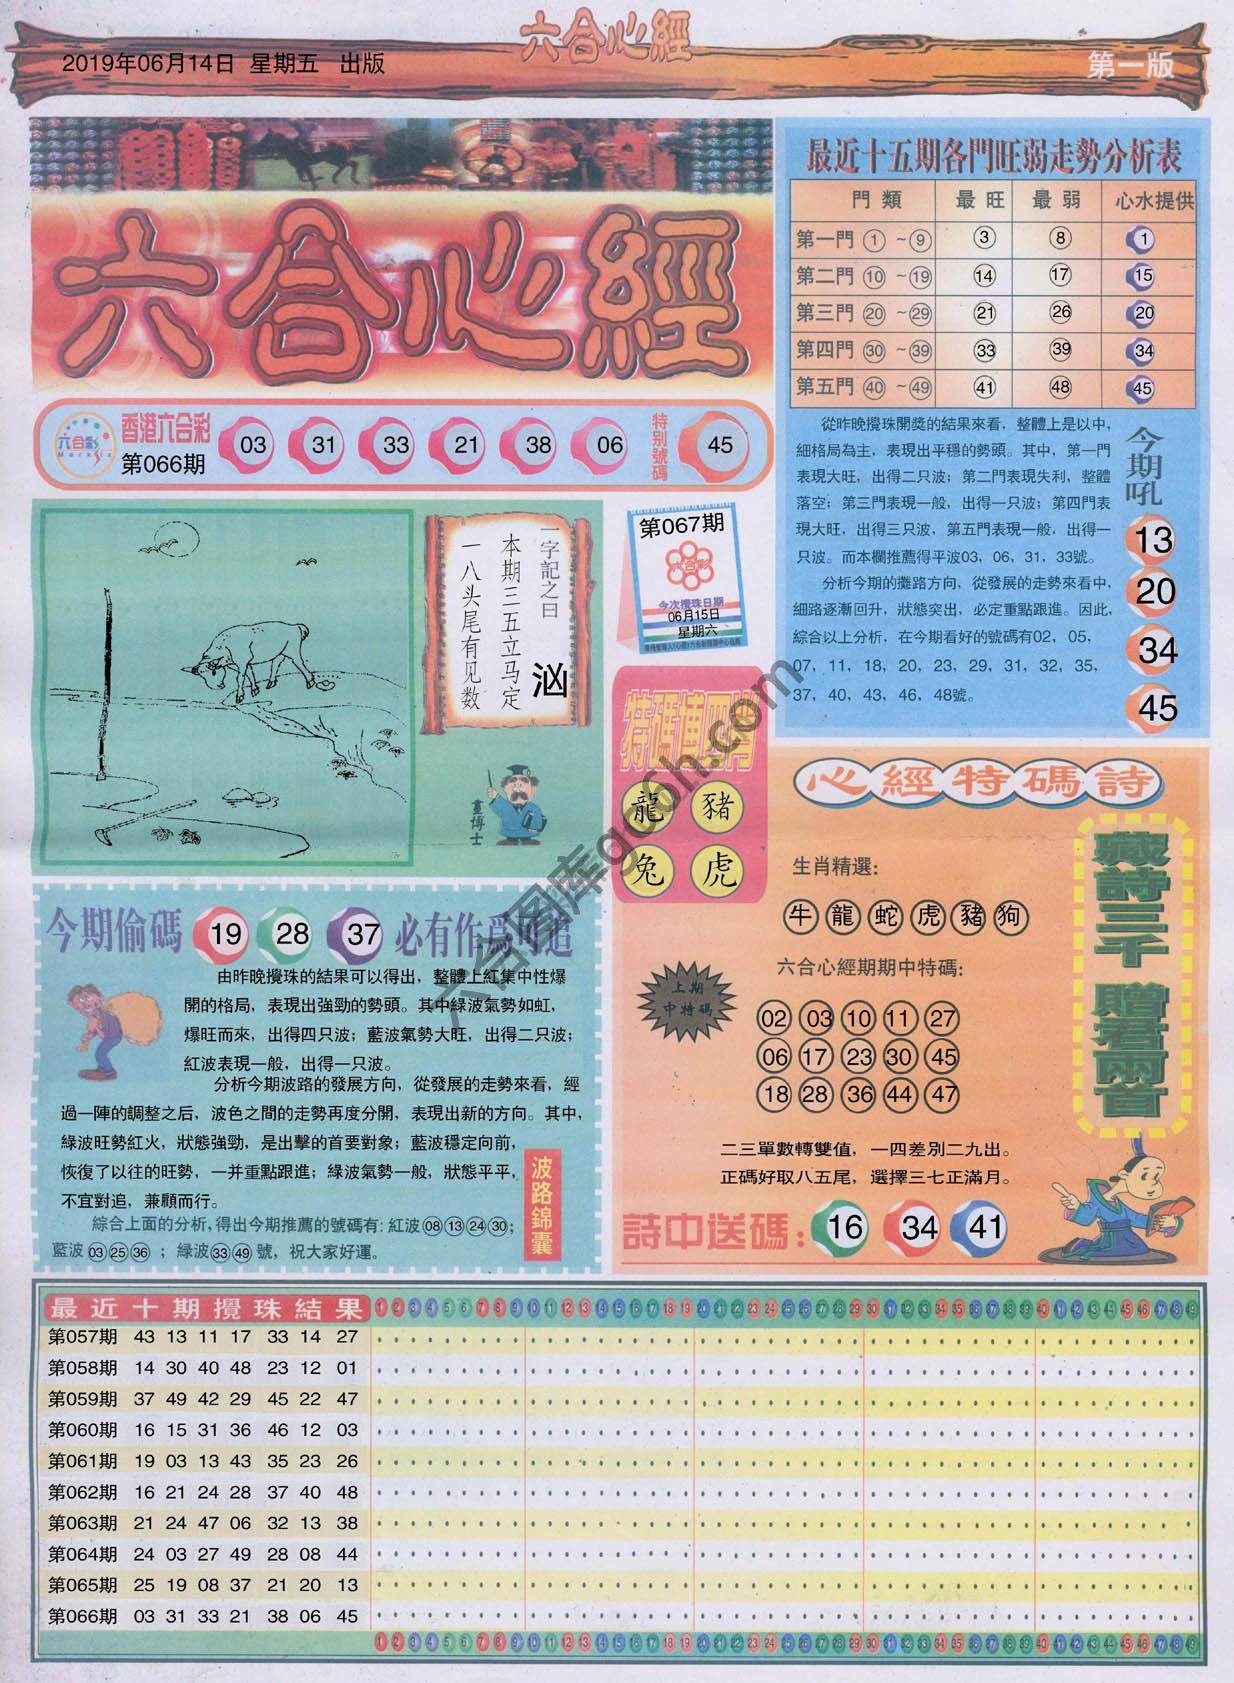 2019年06月14日 星期五 出版
六合心經
第一版
六合心經
香港六合彩
第066期
03 31 33 21 38 06
特别號碼
45
最近十五期各門旺弱走勢分析表
門類 最旺 最弱 心水提供
第一門 ① ~ ⑨ 3 8 1
第二門 ⑩ ~ ⑲ 14 17 15
第三門 ⑳ ~ ㉙ 21 26 20
第四門 ㉚ ~ ㊴ 33 39 34
第五門 ㊵ ~ ㊾ 41 48 45
從昨晚攪珠開獎的結果來看，整體上是以中，
細格局為主，表現出平穩的勢頭。其中，第一門
表現大旺，出得二只波；第二門表現失利，整體
落空；第三門表現一般，出得一只波；第四門表
現大旺，出得三只波，第五門表現一般，出得一
只波。而本欄推薦得平波03，06，31，33號。
分析今期的攤路方向，從發展的走勢來看中，
細路逐漸回升，狀態突出，必定重點跟進。因此，
綜合以上分析，在今期看好的號碼有02，05，
07，11，18，20，23，29，31，32，35，
37，40，43，46，48號。
今期吼
13
20
34
45
一字記之曰
汹
本期三五立马定
一八头尾有见数
畫博士
第067期
六合彩
今次攪珠日期
06月15日
星期六
特碼博四肖
龍 豬
兔 虎
心經特碼詩
生肖精選：
牛 龍 蛇 虎 豬 狗
六合心經期期中特碼：
上期
中特碼
02 03 10 11 27
06 17 23 30 45
18 28 36 44 47
二三單數轉雙值，一四差別二九出。
正碼好取八五尾，選擇三七正滿月。
詩中送碼： 16 34 41
藏詩三千 贈君兩首
今期偷碼 19 28 37 必有作爲可追
由昨晚攪珠的結果可以得出，整體上紅集中性爆
開的格局，表現出強勁的勢頭。其中綠波氣勢如虹，
爆旺而來，出得四只波；藍波氣勢大旺，出得二只波；
紅波表現一般，出得一只波。
分析今期波路的發展方向，從發展的走勢來看，經
過一陣的調整之后，波色之間的走勢再度分開，表現出新的方向。其中，
綠波旺勢紅火，狀態強勁，是出擊的首要對象；藍波穩定向前，
恢復了以往的旺勢，一并重點跟進；綠波氣勢一般，狀態平平，
不宜對追，兼顧而行。
綜合上面的分析，得出今期推薦的號碼有：紅波 08 13 24 30；
藍波 03 25 36；綠波 33 49 號，祝大家好運。
波路錦囊
六合图库gd6h.com
最近十期攪珠結果 1 2 3 4 5 6 7 8 9 10 11 12 13 14 15 16 17 18 19 20 21 22 23 24 25 26 27 28 29 30 31 32 33 34 35 36 37 38 39 40 41 42 43 44 45 46 47 48 49
第057期 43 13 11 17 33 14 27
第058期 14 30 40 48 23 12 01
第059期 37 49 42 29 45 22 47
第060期 16 15 31 36 46 12 03
第061期 19 03 13 43 35 23 26
第062期 16 21 24 28 37 40 48
第063期 21 24 47 06 32 13 38
第064期 24 03 27 49 28 08 44
第065期 25 19 08 37 21 20 13
第066期 03 31 33 21 38 06 45
1 2 3 4 5 6 7 8 9 10 11 12 13 14 15 16 17 18 19 20 21 22 23 24 25 26 27 28 29 30 31 32 33 34 35 36 37 38 39 40 41 42 43 44 45 46 47 48 49